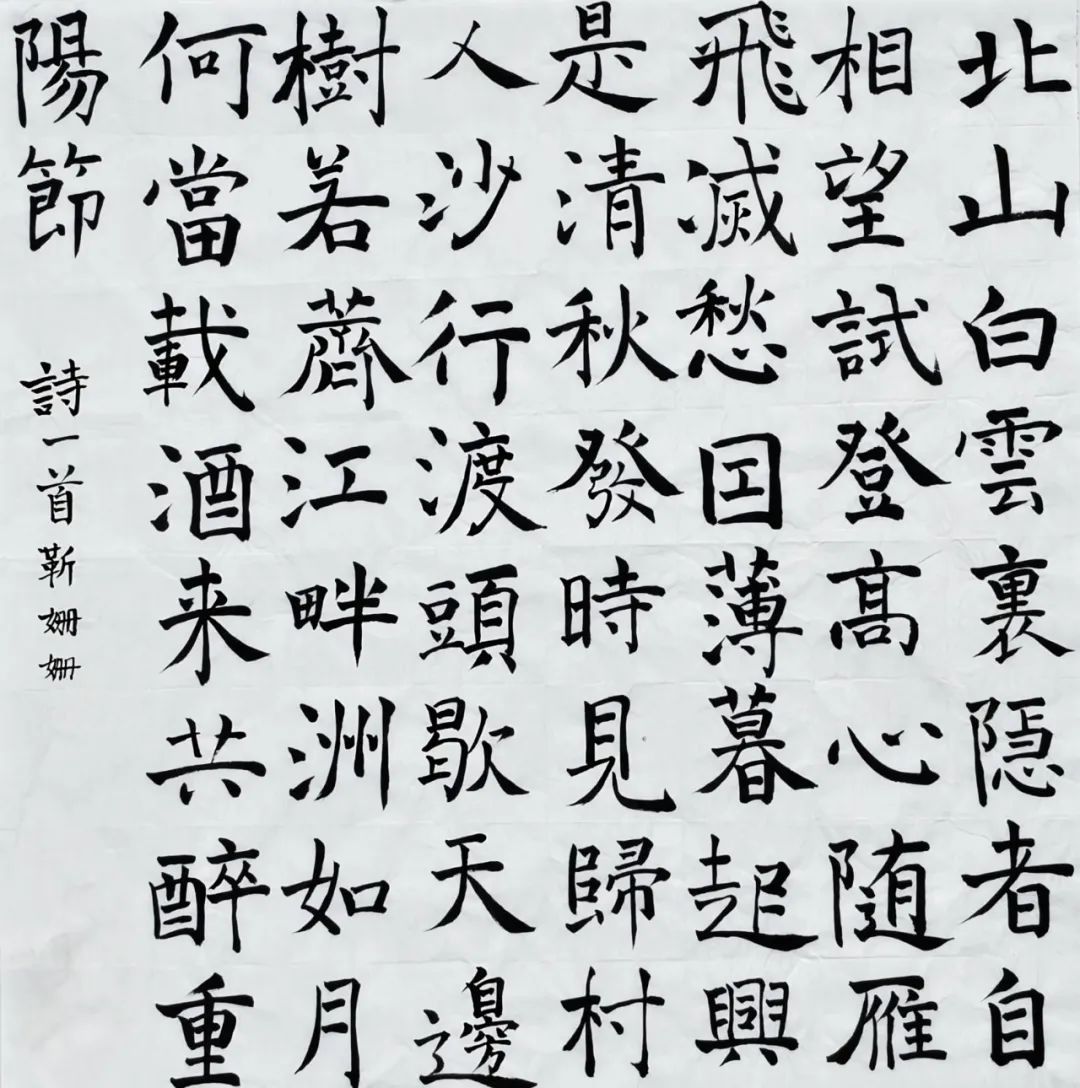 北山白雲裏隐者自
相望試登髙心随雁
飛滅愁因薄暮起興
是清秋發時見歸村
人沙行渡頭歇天邊
樹若薺江畔洲如月
何當載酒来共醉重
陽節
詩一首 靳姗姗